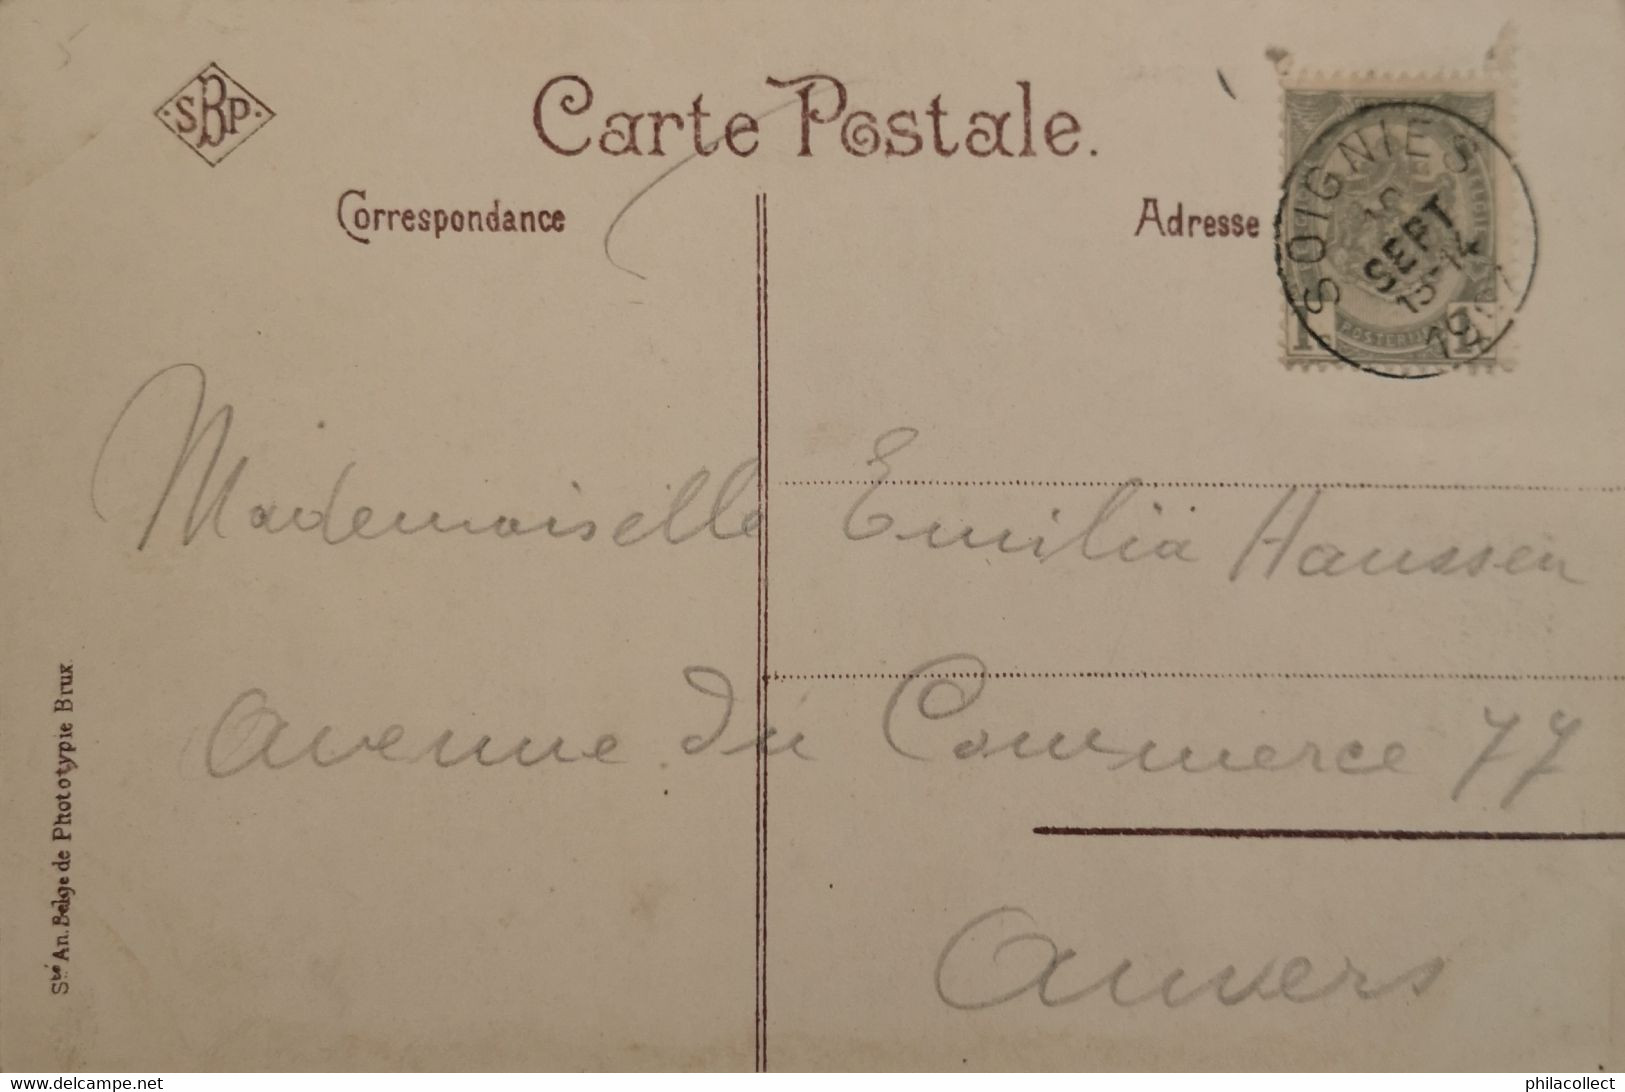 SBP
Carte Postale.
Correspondance
Adresse
SOIGNIES
SEPT
13-14
POSTERIJEN
Mademoiselle Emilia Haussen
Avenue du Commerce 77
Anvers
Sté An. Belge de Phototypie Brux.
delcampe.net
philacollect